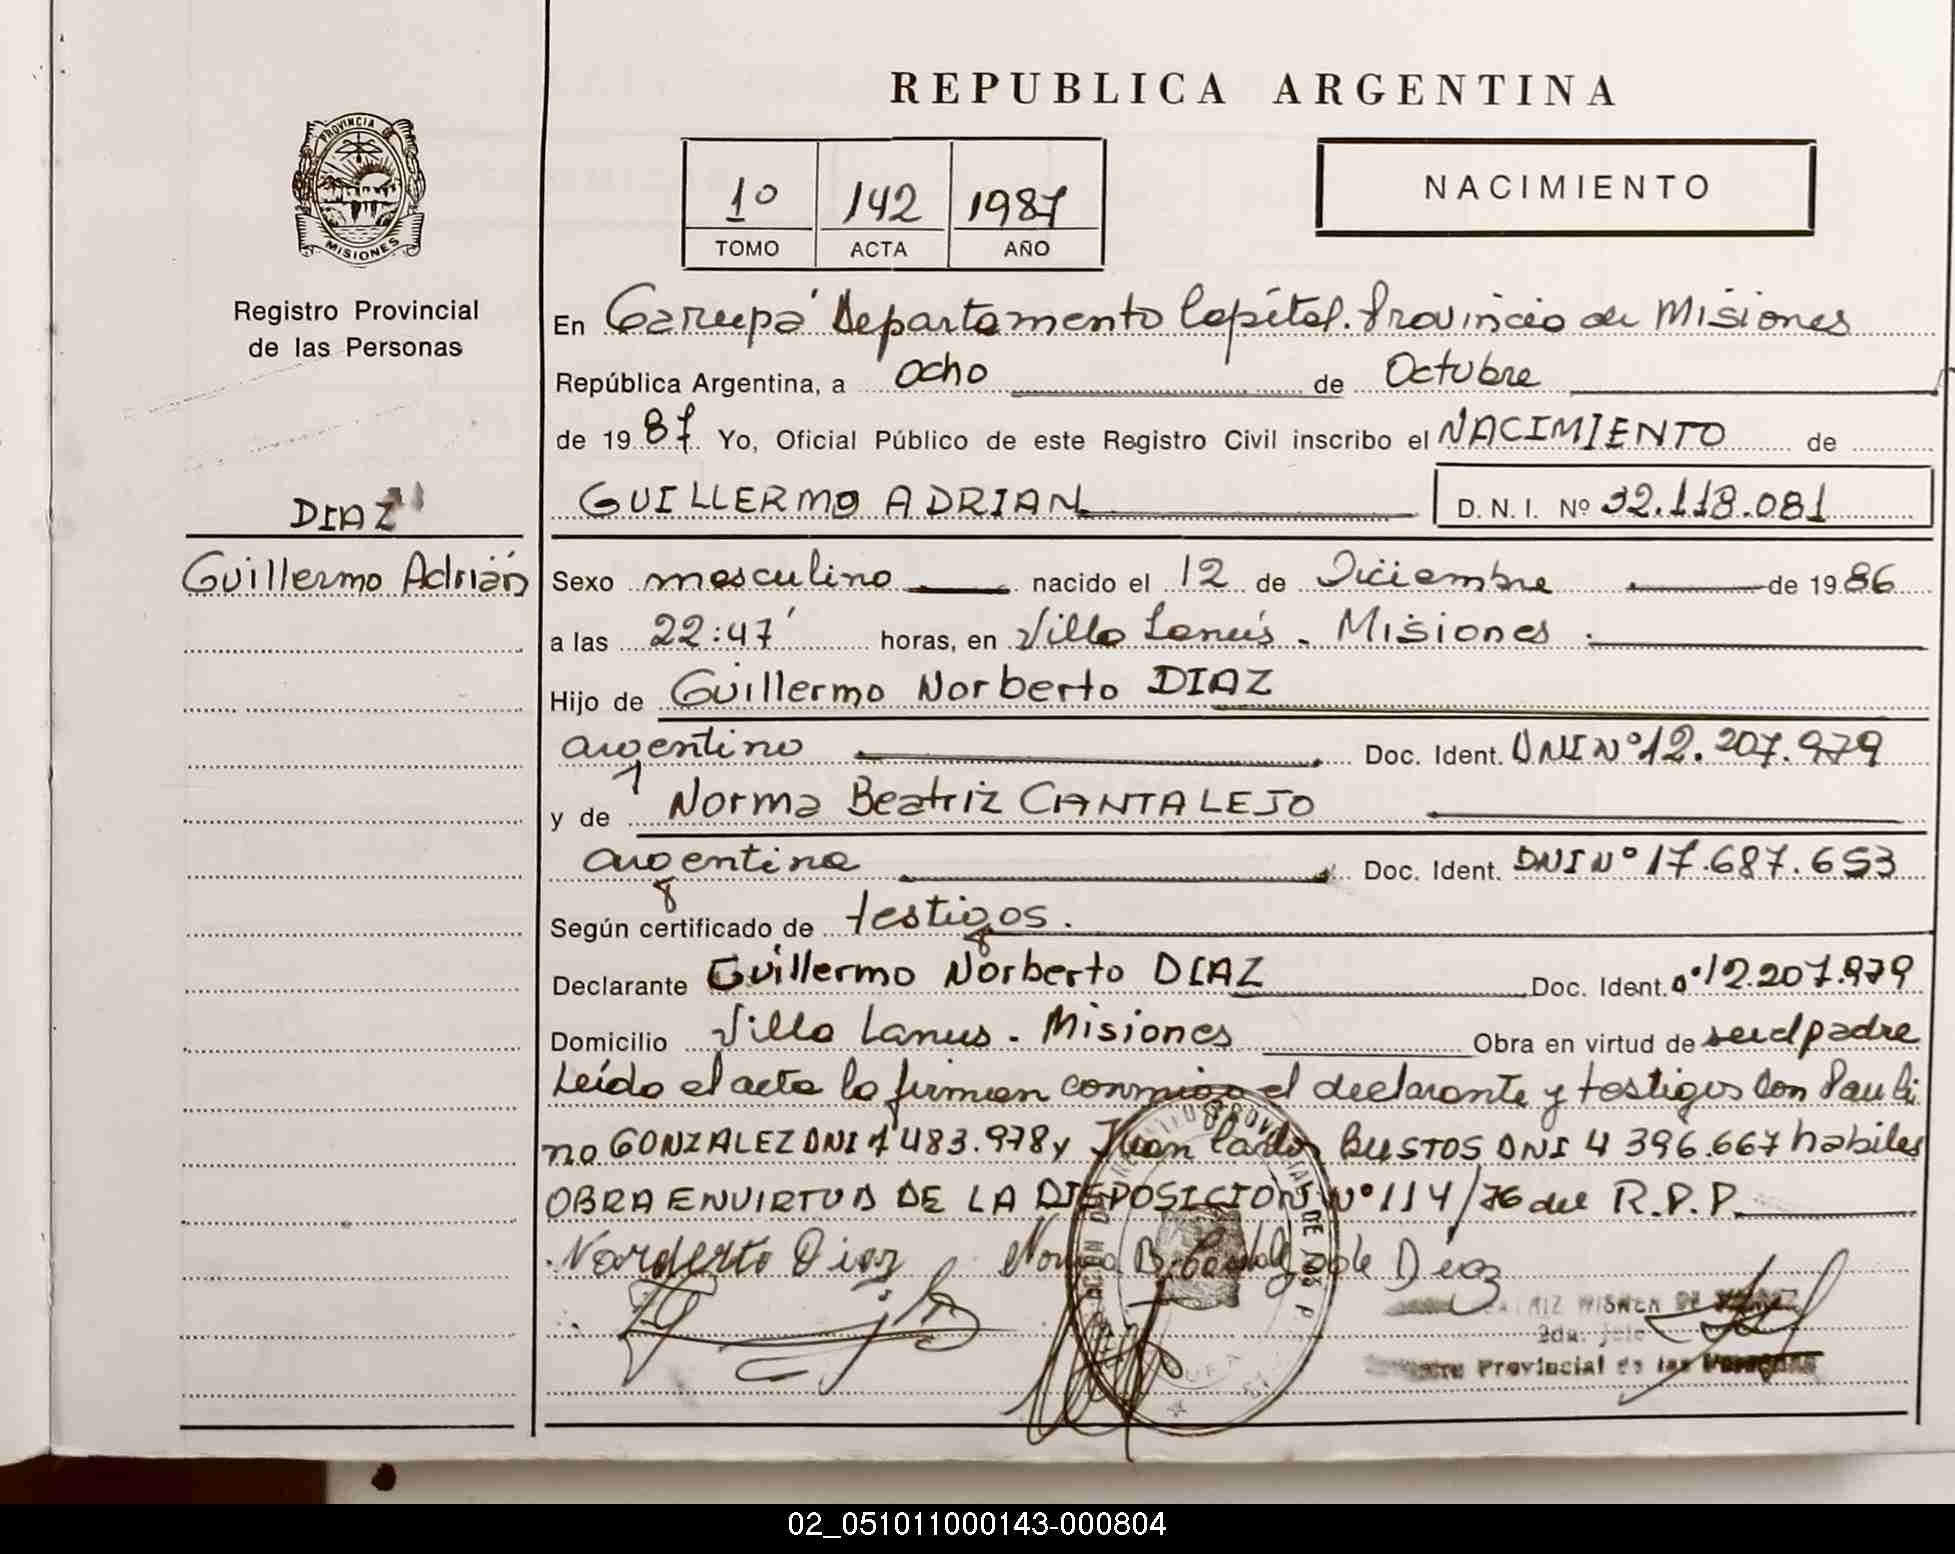 REPUBLICA ARGENTINA
PROVINCIA DE
MISIONES
Registro Provincial
de las Personas
1º 142 1987
TOMO ACTA AÑO
NACIMIENTO
En Garupá Departamento Capital. Provincia de Misiones
República Argentina, a ocho de Octubre
de 1987 Yo, Oficial Público de este Registro Civil inscribo el NACIMIENTO de
GUILLERMO ADRIAN D. N. I. Nº 32.118.081
DIAZ
Guillermo Adrián
Sexo masculino nacido el 12 de Diciembre de 1986
a las 22:47' horas, en Villa Lanús - Misiones.
Hijo de Guillermo Norberto DIAZ
argentino Doc. Ident. DNI Nº 12.207.979
y de Norma Beatriz CANTALEJO
argentina Doc. Ident. DNI Nº 17.687.653
Según certificado de testigos.
Declarante Guillermo Norberto DIAZ Doc. Ident. nº 12.207.979
Domicilio Villa Lanus - Misiones Obra en virtud de ser el padre
Leído el acta la firman conmigo el declarante y testigos Don Pauli
no GONZALEZ DNI 7 483.978 y Juan Carlos BUSTOS DNI 4 396.667 habiles
OBRA EN VIRTUD DE LA DISPOSICION Nº 114/76 del R.P.P.
Norberto Diaz Norma B. Cantalejo de Diaz
2da. Jefe
Provincial de las Personas
02_051011000143-000804